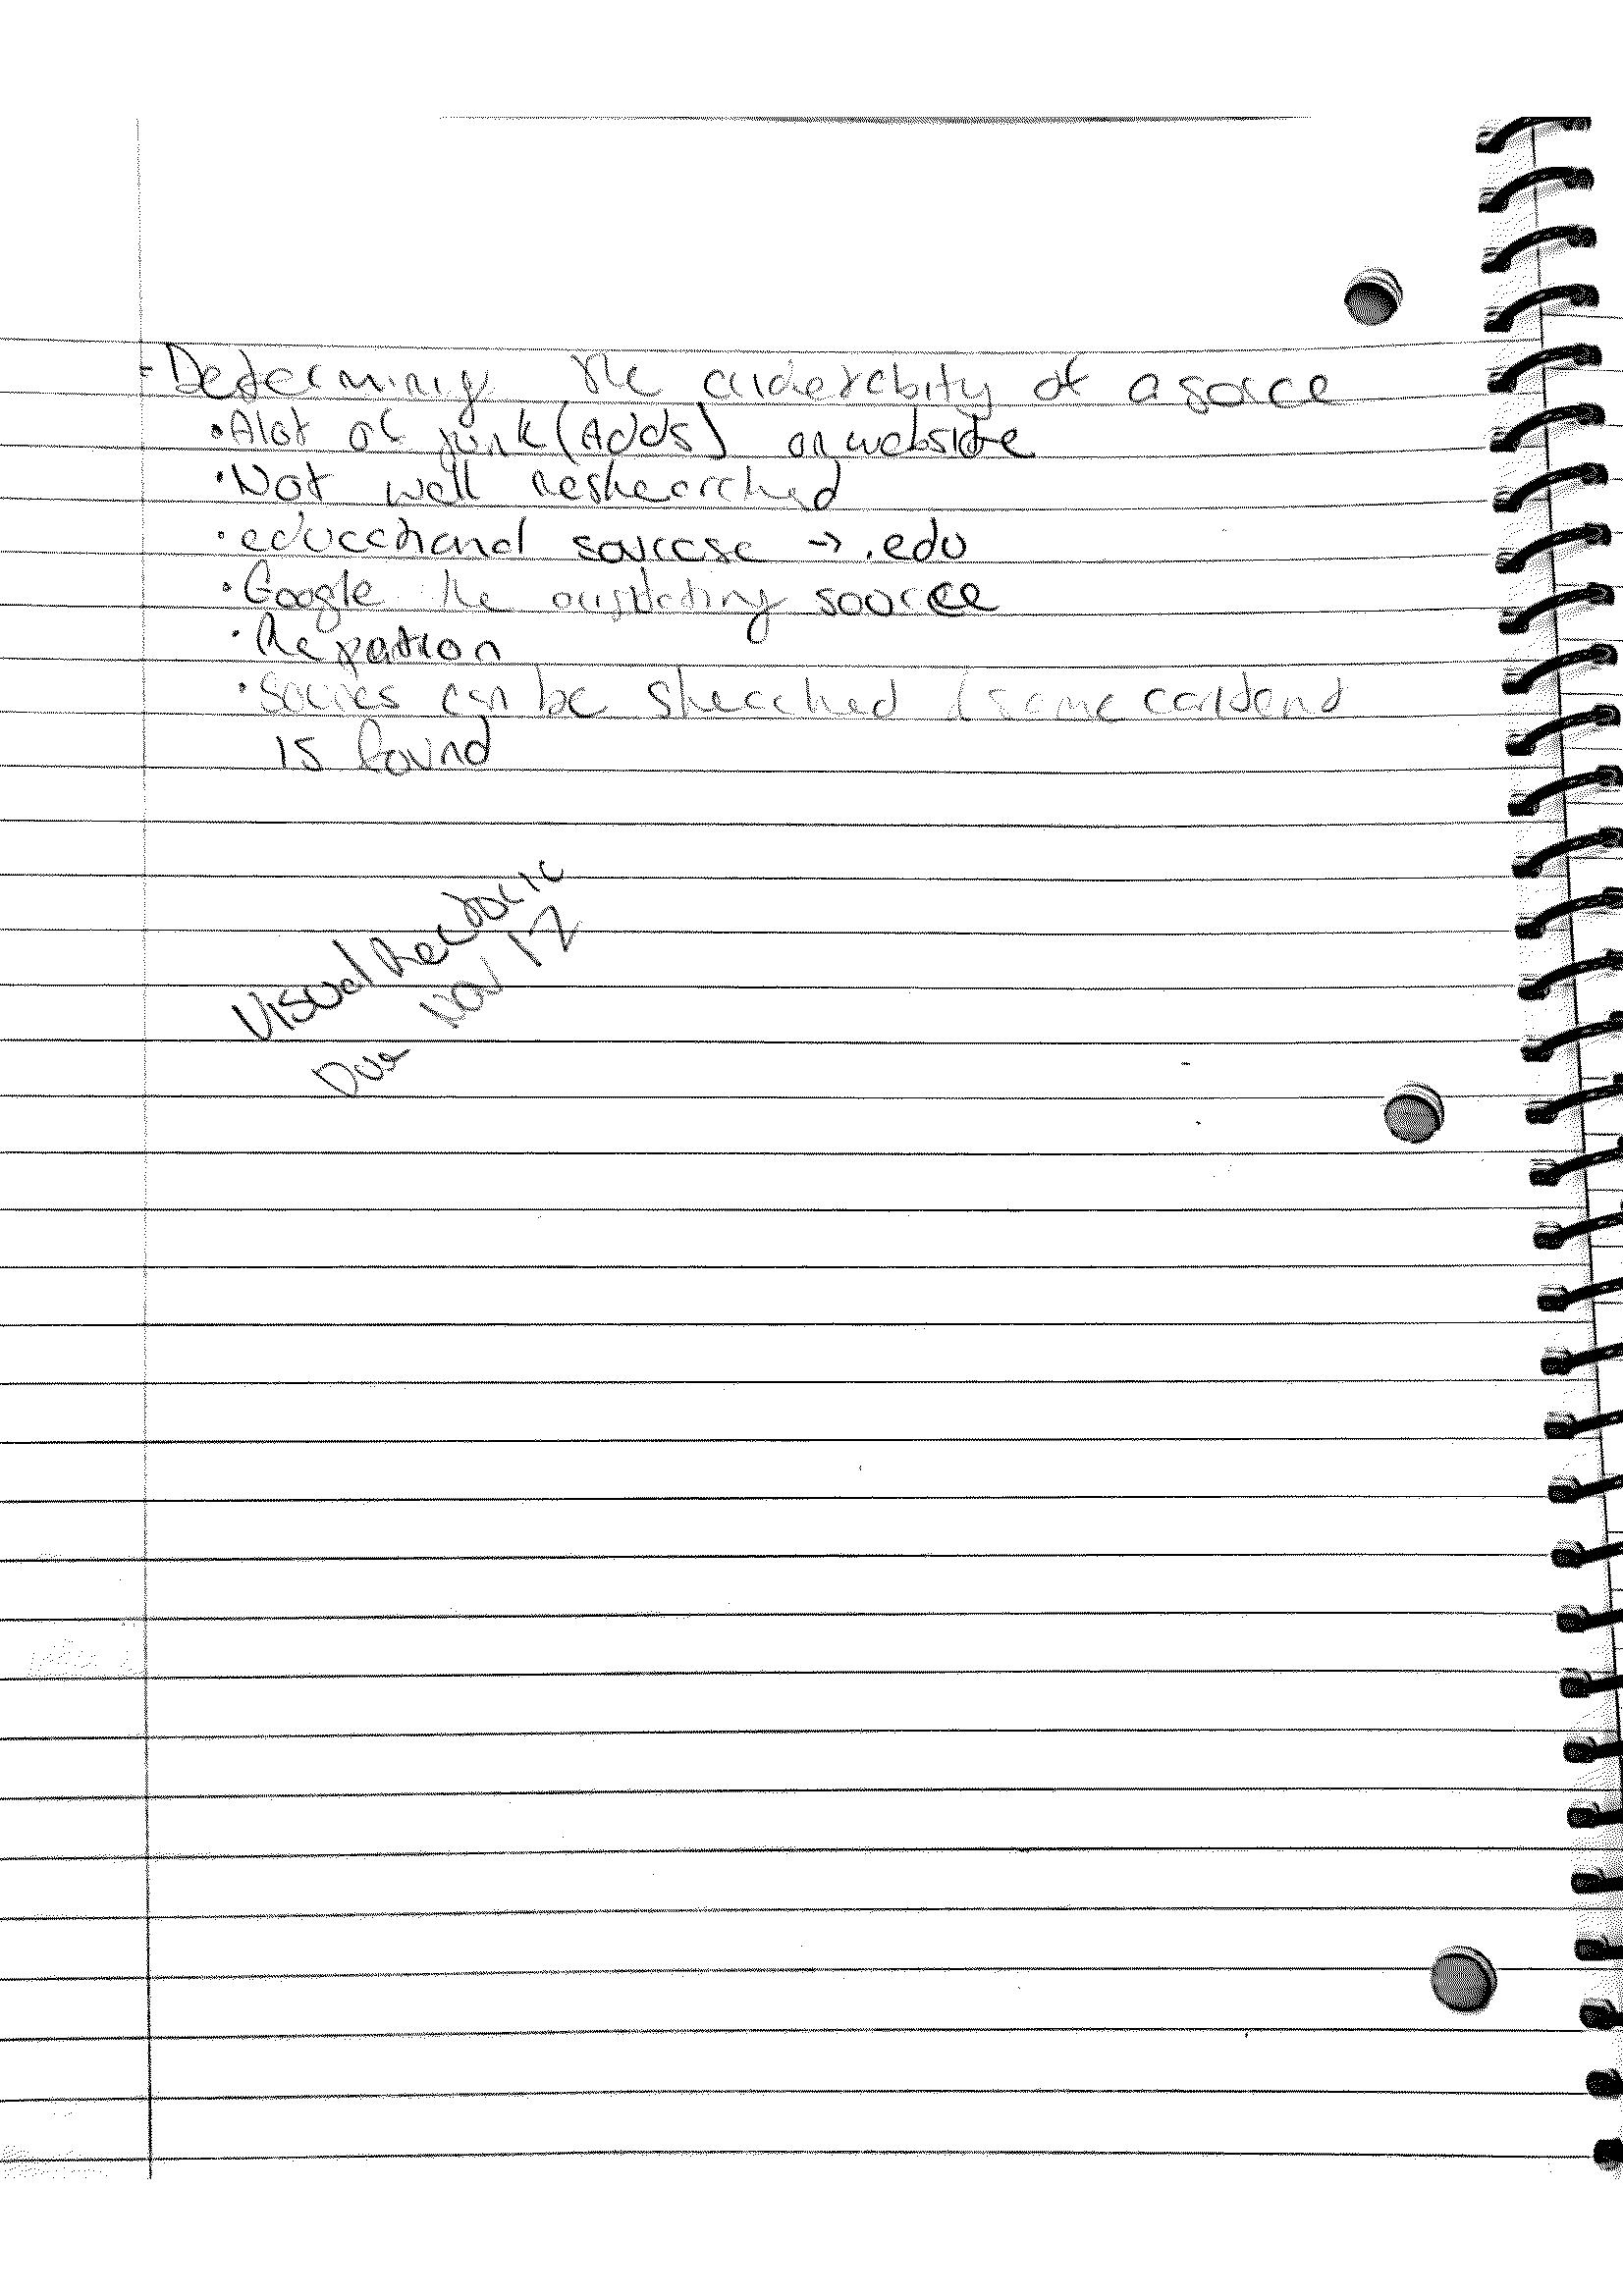 - Determining the of a source
• Alot of junk (Adds) on website
• Not well reshearched
• educational sourcse → .edu
• Google the source
• Repation
• Sources can be shearched (some
is found
Visual Rhetoric
Due Nov 12